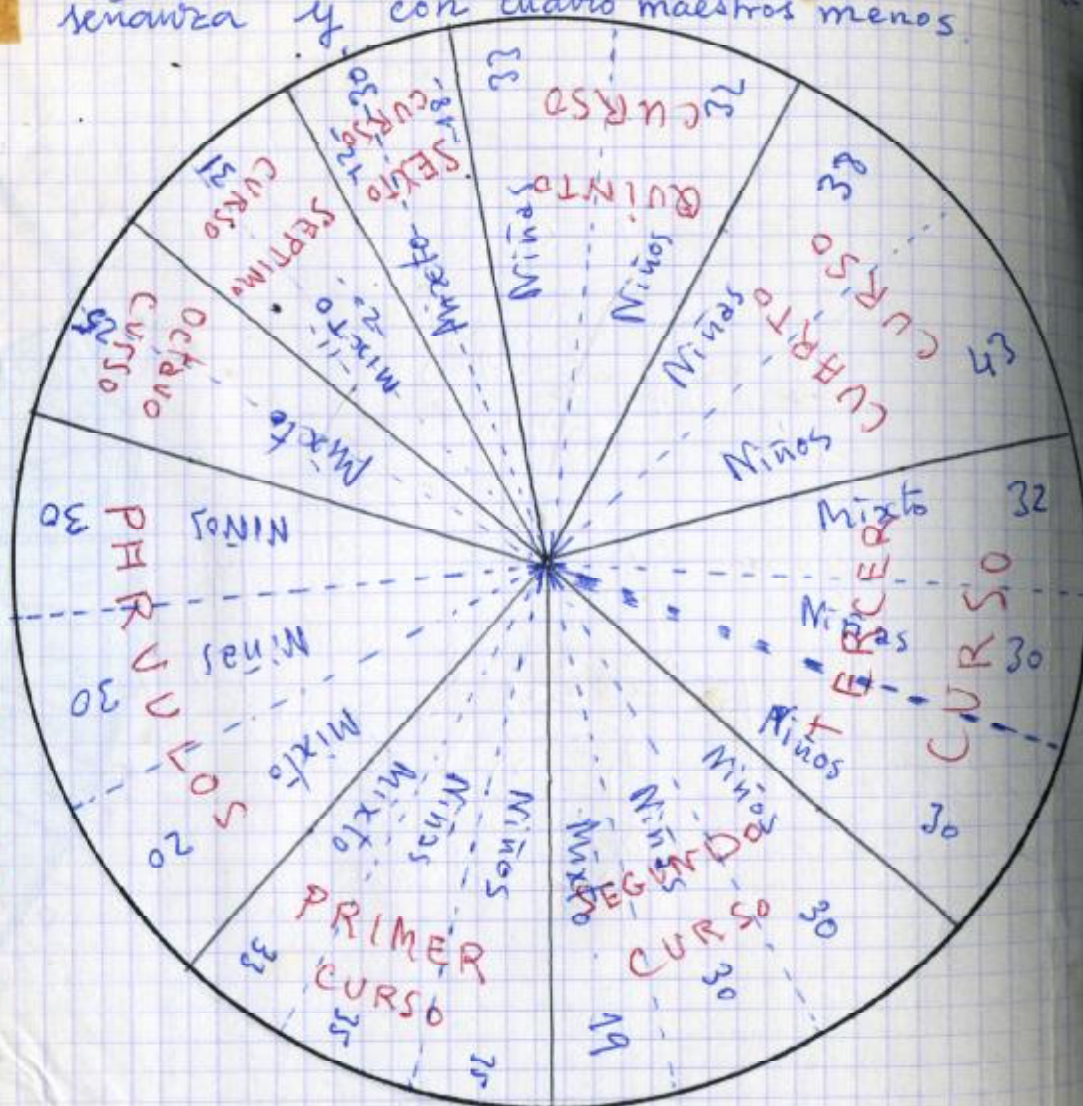 señanza y con cuatro maestros menos.
QUINTO
CURSO
Niñas
33
Niños
32
CUARTO
CURSO
Niñas
38
Niños
43
TERCER
CURSO
Mixto
32
Niñas
30
Niños
30
SEGUNDO
CURSO
Niños
30
Niñas
30
Mixto
19
PRIMER
CURSO
Niños
Niñas
35
Mixto
33
PARVULOS
Mixto
20
Niñas
30
NIÑOS
30
Octavo
CURSO
25
Mixto
SEPTIMO
CURSO
31
MIXTO
SEXTO
CURSO
Mixto